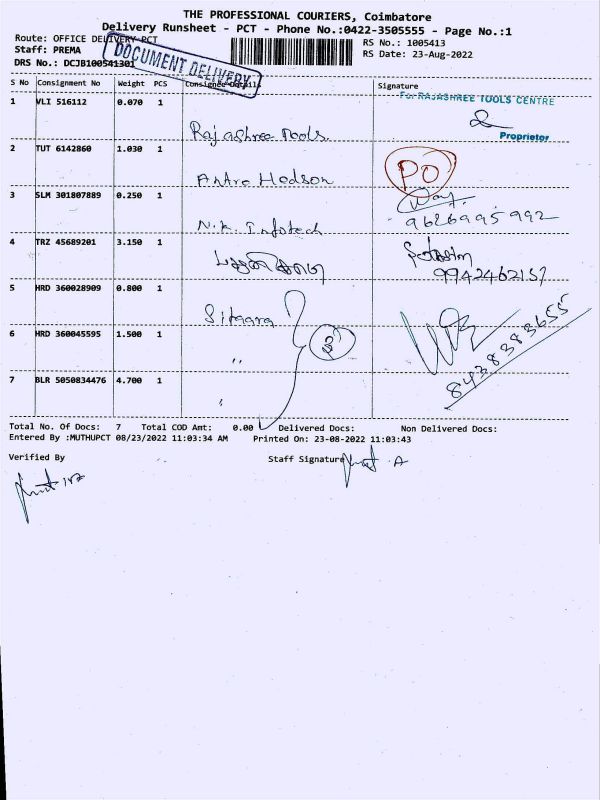 THE PROFESSIONAL COURIERS, Coimbatore
Delivery Runsheet - PCT - Phone No.:0422-3505555 - Page No.:1
Route: OFFICE DELIVERY PCT
RS No.: 1005413
Staff: PREMA
RS Date: 23-Aug-2022
DRS No.: DCJB100541301
DOCUMENT DELIVERY
S No Consignment No Weight PCS Consignee Details Signature
For RAJASHREE TOOLS CENTRE
1 VLI 516112 0.070 1 Rajashree Tools
Proprietor
2 TUT 6142860 1.030 1 Antro Hodson PO
3 SLM 301807889 0.250 1 N.K. Infotech 9626995992
4 TRZ 45689201 3.150 1 9942462157
5 HRD 360028909 0.800 1 Sitaara
6 HRD 360045595 1.500 1 " 3 8438383655
7 BLR 5050834476 4.700 1 "
Total No. Of Docs: 7 Total COD Amt: 0.00 Delivered Docs: Non Delivered Docs:
Entered By :MUTHUPCT 08/23/2022 11:03:34 AM Printed On: 23-08-2022 11:03:43
Verified By Staff Signature